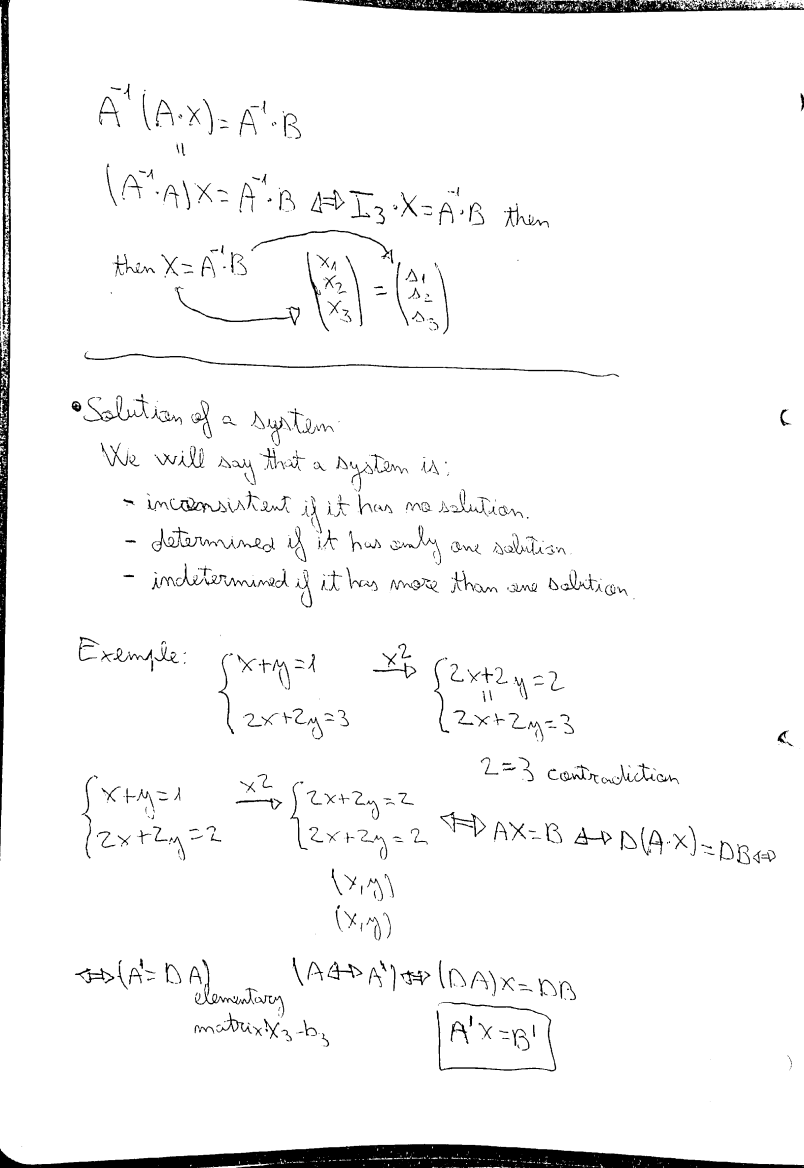 A⁻¹(A·X) = A⁻¹·B
=
(A⁻¹·A)X = A⁻¹·B ⇔ I₃·X = A⁻¹·B then
then X = A⁻¹·B (x₁ x₂ x₃) = (s₁ s₂ s₃)
• Solution of a system
We will say that a system is:
- inconsistent if it has no solution.
- determined if it has only one solution.
- indetermined if it has more than one solution.
Exemple: { x+y=1 ×2⇒ { 2x+2y=2
=
2x+2y=3 2x+2y=3
2=3 contradiction
{ x+y=1 ×2⇒ { 2x+2y=2
2x+2y=2 2x+2y=2 ⇔ AX=B ⇔ D(A·X)=DB ⇔
(x,y)
(x,y)
⇔ (A'=DA) (A⇔A') ⇔ (DA)X=DB
elementary
matrix X₃-b₃ A'X=B'